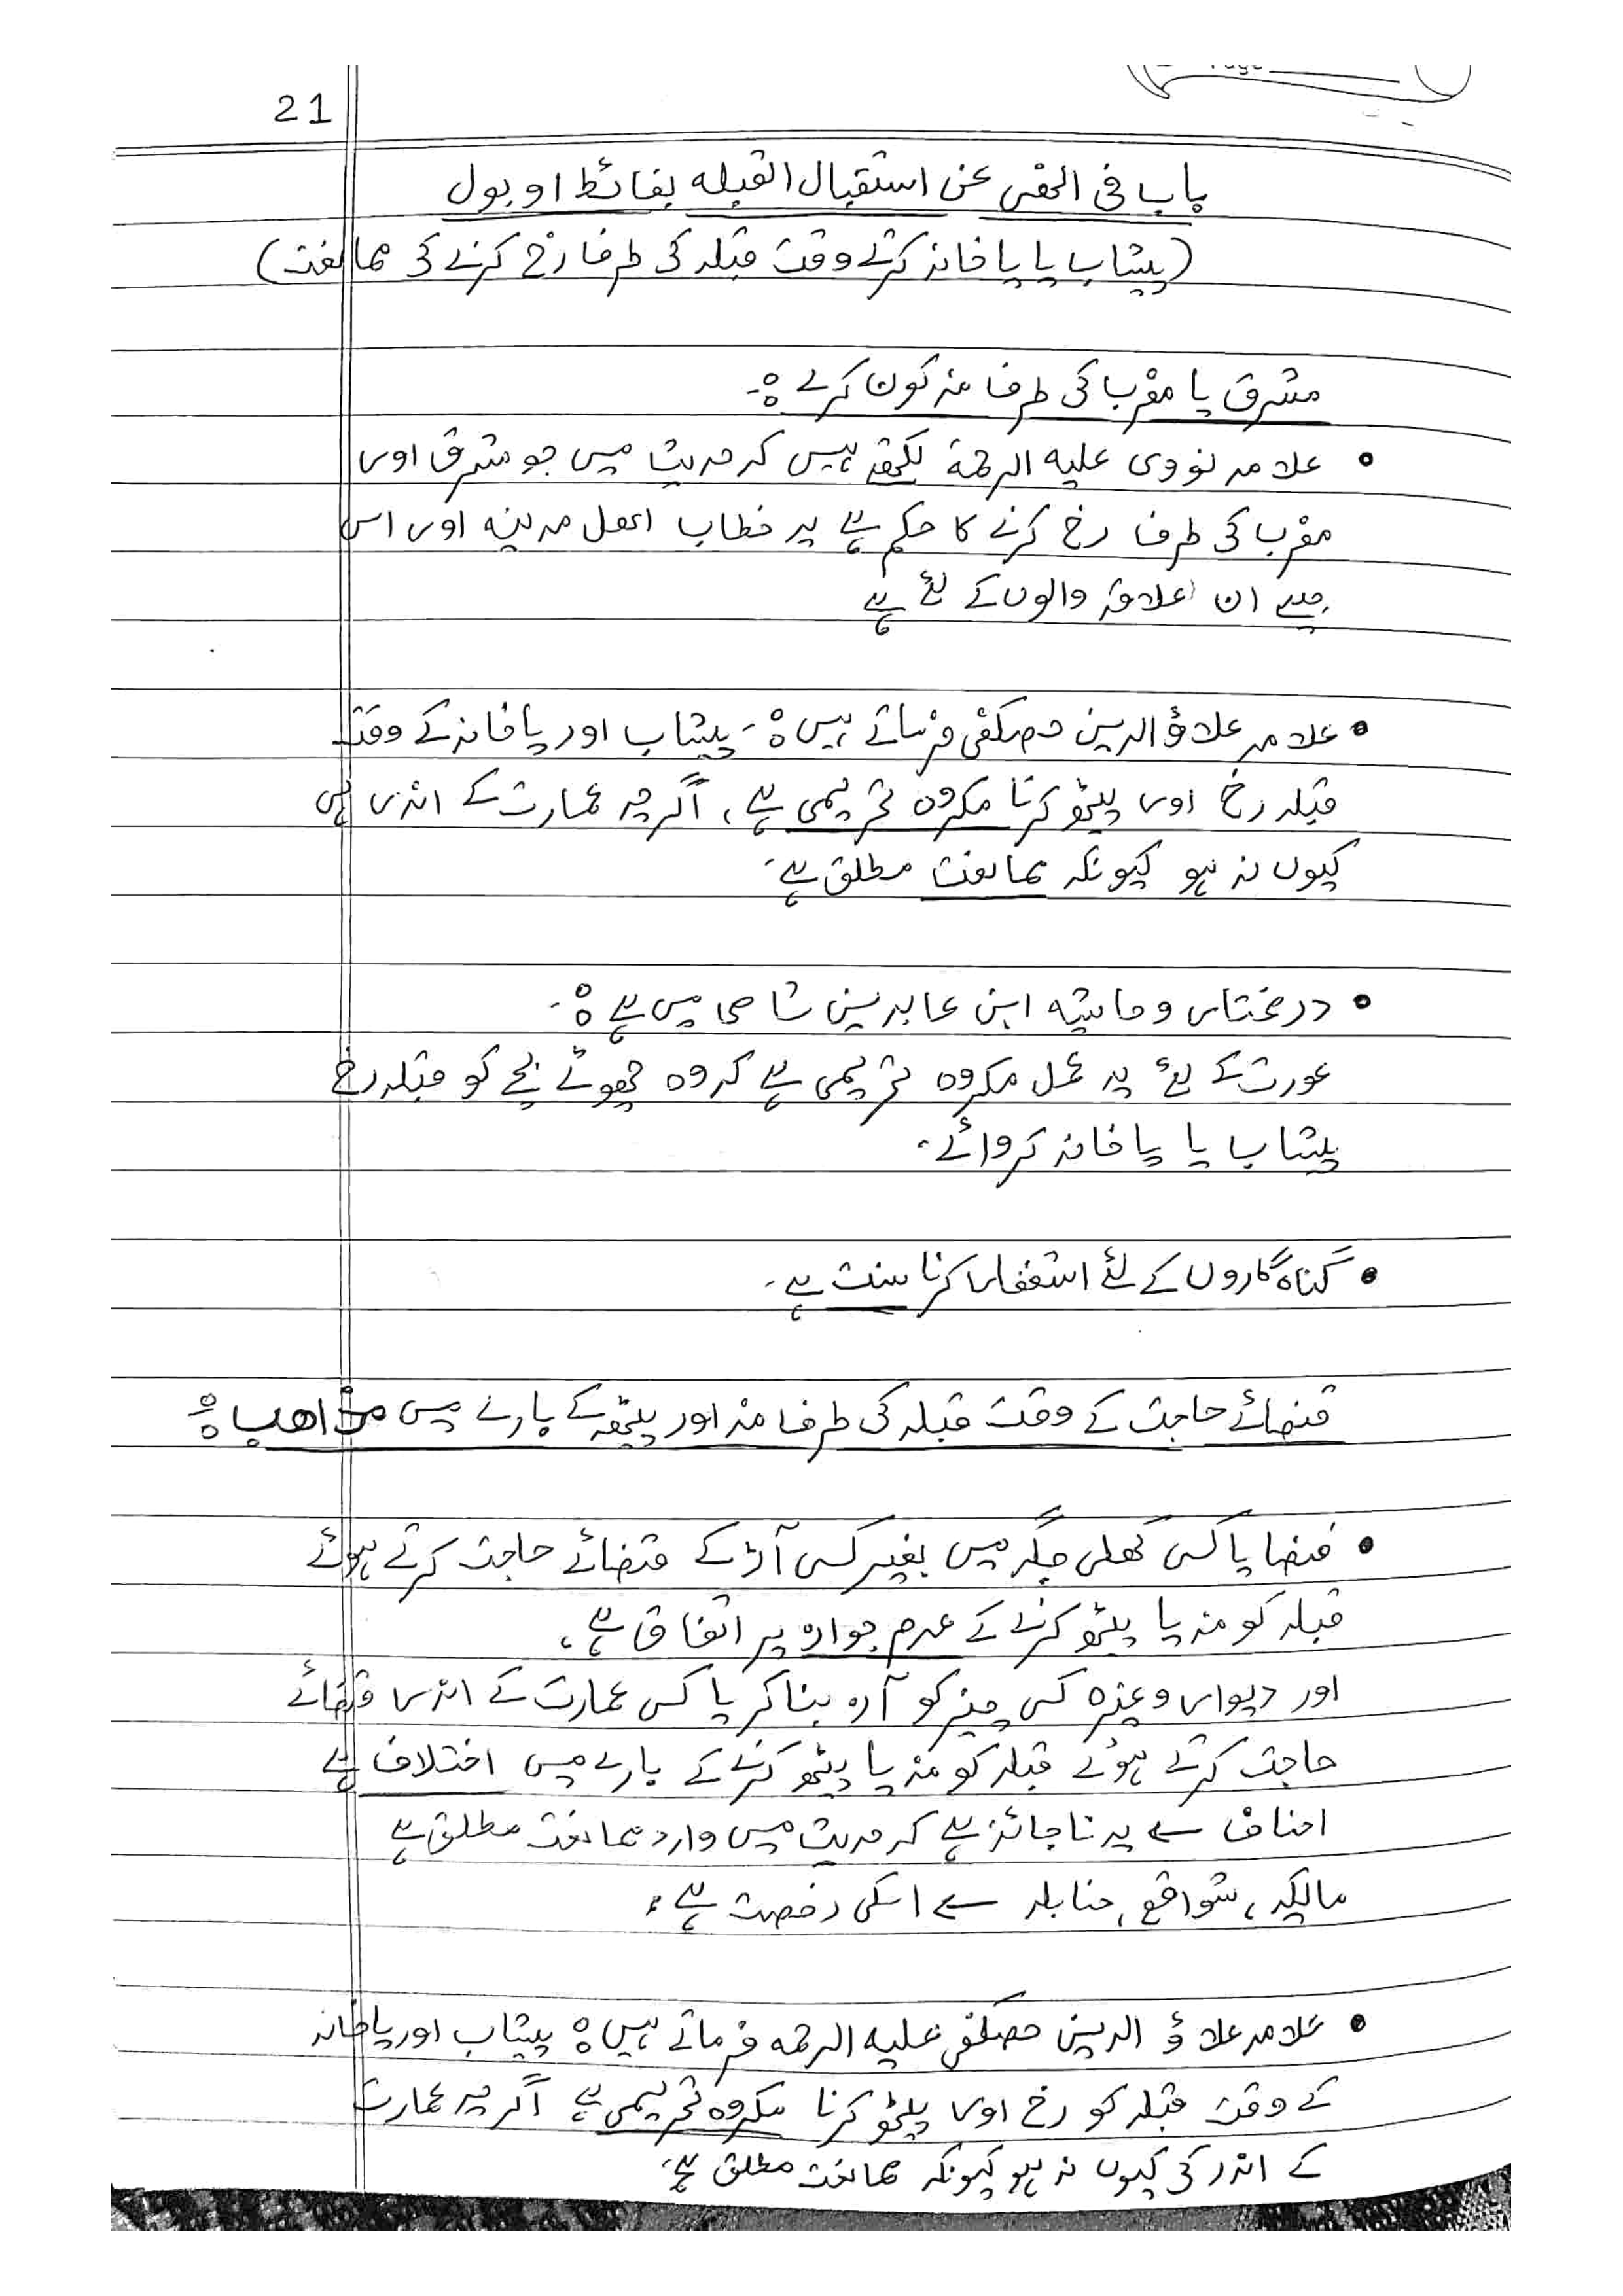 21
باب فی النھی عن استقبال القبلہ بغائط او بول
(پیشاب یا پاخانہ کرتے وقت قبلہ کی طرف رخ کرنے کی ممانعت)
مشرق یا مغرب کی طرف منہ کون کرے :-
• علامہ نووی علیہ الرحمۃ لکھتے ہیں کہ حدیث میں جو مشرق اور
مغرب کی طرف رخ کرنے کا حکم ہے یہ خطاب اھل مدینہ اور اس
جیسے ان علاقہ والوں کے لئے ہے
• علامہ علاؤ الدین حصکفی فرماتے ہیں :- پیشاب اور پاخانہ کے وقت
قبلہ رخ اور پیٹھ کرنا مکروہ تحریمی ہے، اگرچہ عمارت کے اندر ہی
کیوں نہ ہو کیونکہ ممانعت مطلق ہے۔
• در مختار و حاشیہ ابن عابدین شامی میں ہے :-
عورت کے لئے یہ عمل مکروہ تحریمی ہے کہ وہ چھوٹے بچے کو قبلہ رخ
پیشاب یا پاخانہ کروائے۔
• گناہ گاروں کے لئے استغفار کرنا سنت ہے۔
قضائے حاجت کے وقت قبلہ کی طرف منہ اور پیٹھ کے بارے میں مذاھب :
• فضا یا کسی کھلی جگہ میں بغیر کسی آڑ کے قضائے حاجت کرتے ہوئے
قبلہ کو منہ یا پیٹھ کرنے کے عدم جواز پر اتفاق ہے،
اور دیوار وغیرہ کسی چیز کو آڑ بنا کر یا کسی عمارت کے اندر قضائے
حاجت کرتے ہوئے قبلہ کو منہ یا پیٹھ کرنے کے بارے میں اختلاف ہے
احناف ← یہ ناجائز ہے کہ حدیث میں وارد ممانعت مطلق ہے
مالکیہ، شوافع، حنابلہ ← اسکی رخصت ہے،
• علامہ علاؤ الدین حصکفی علیہ الرحمہ فرماتے ہیں : پیشاب اور پاخانہ
کے وقت قبلہ کو رخ اور پیٹھ کرنا مکروہ تحریمی ہے اگرچہ عمارت
کے اندر کی کیوں نہ ہو کیونکہ ممانعت مطلق ہے۔